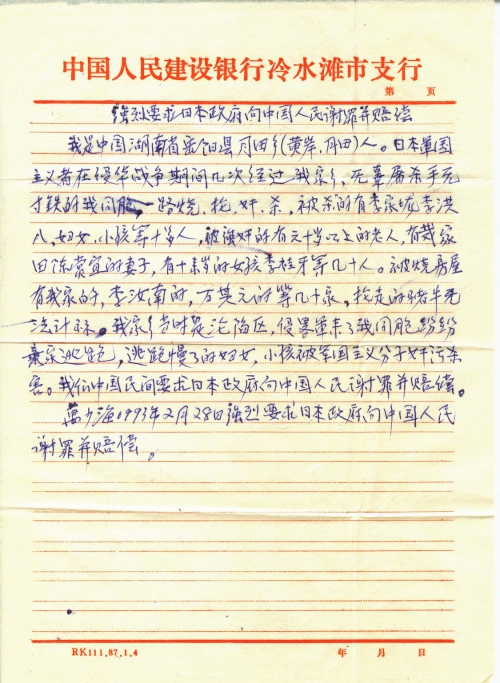 中国人民建设银行冷水滩市支行
第 页
强烈要求日本政府向中国人民谢罪并赔偿
我是中国湖南省岳阳县月田乡(黄岸、月田)人。日本軍国
主义者在侵华战争期间几次经过我家乡,无辜屠杀手无
寸铁的我同胞,一路烧、抢、奸、杀,被杀的有李家垅李洪
八,妇女、小孩等十多人,被强奸的有六十岁以上的老人,有我家
田陈素宜的妻子,有十来岁的女孩李桂牙等几十人。被烧房屋
有我家的,李汝南的,万其元的等几十家,抢走的猪牛无
法计祘。我家乡当时是沦陷区,侵畧軍来了我同胞纷纷
逃跑,逃跑慢了的妇女,小孩被军国主义分子奸污杀
害。我们中国民间要求日本政府向中国人民谢罪并赔偿。
萬少海1993年2月28日强烈要求日本政府向中国人民
谢罪并赔偿。
RK111.87.1.4
年 月 日